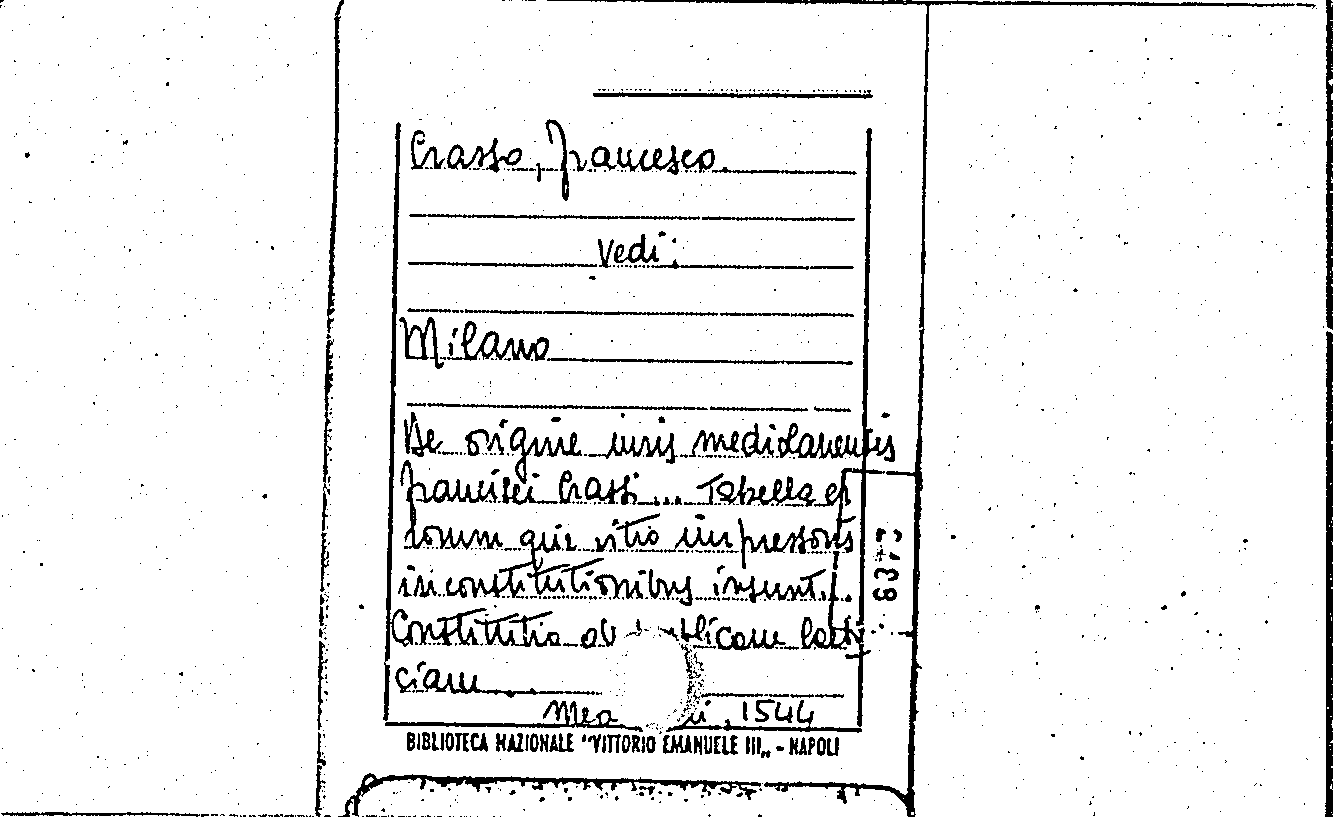 Crasso, Francesco.
Vedi:
Milano
De origine iuris mediolanensis
Francisci Crassi... Tabella eo
rum que vitio impressoris
in constitutionibus insunt...
Constitutio ob publicam laeti
ciam...
Me i, 1544
BIBLIOTECA NAZIONALE "VITTORIO EMANUELE III„ - NAPOLI